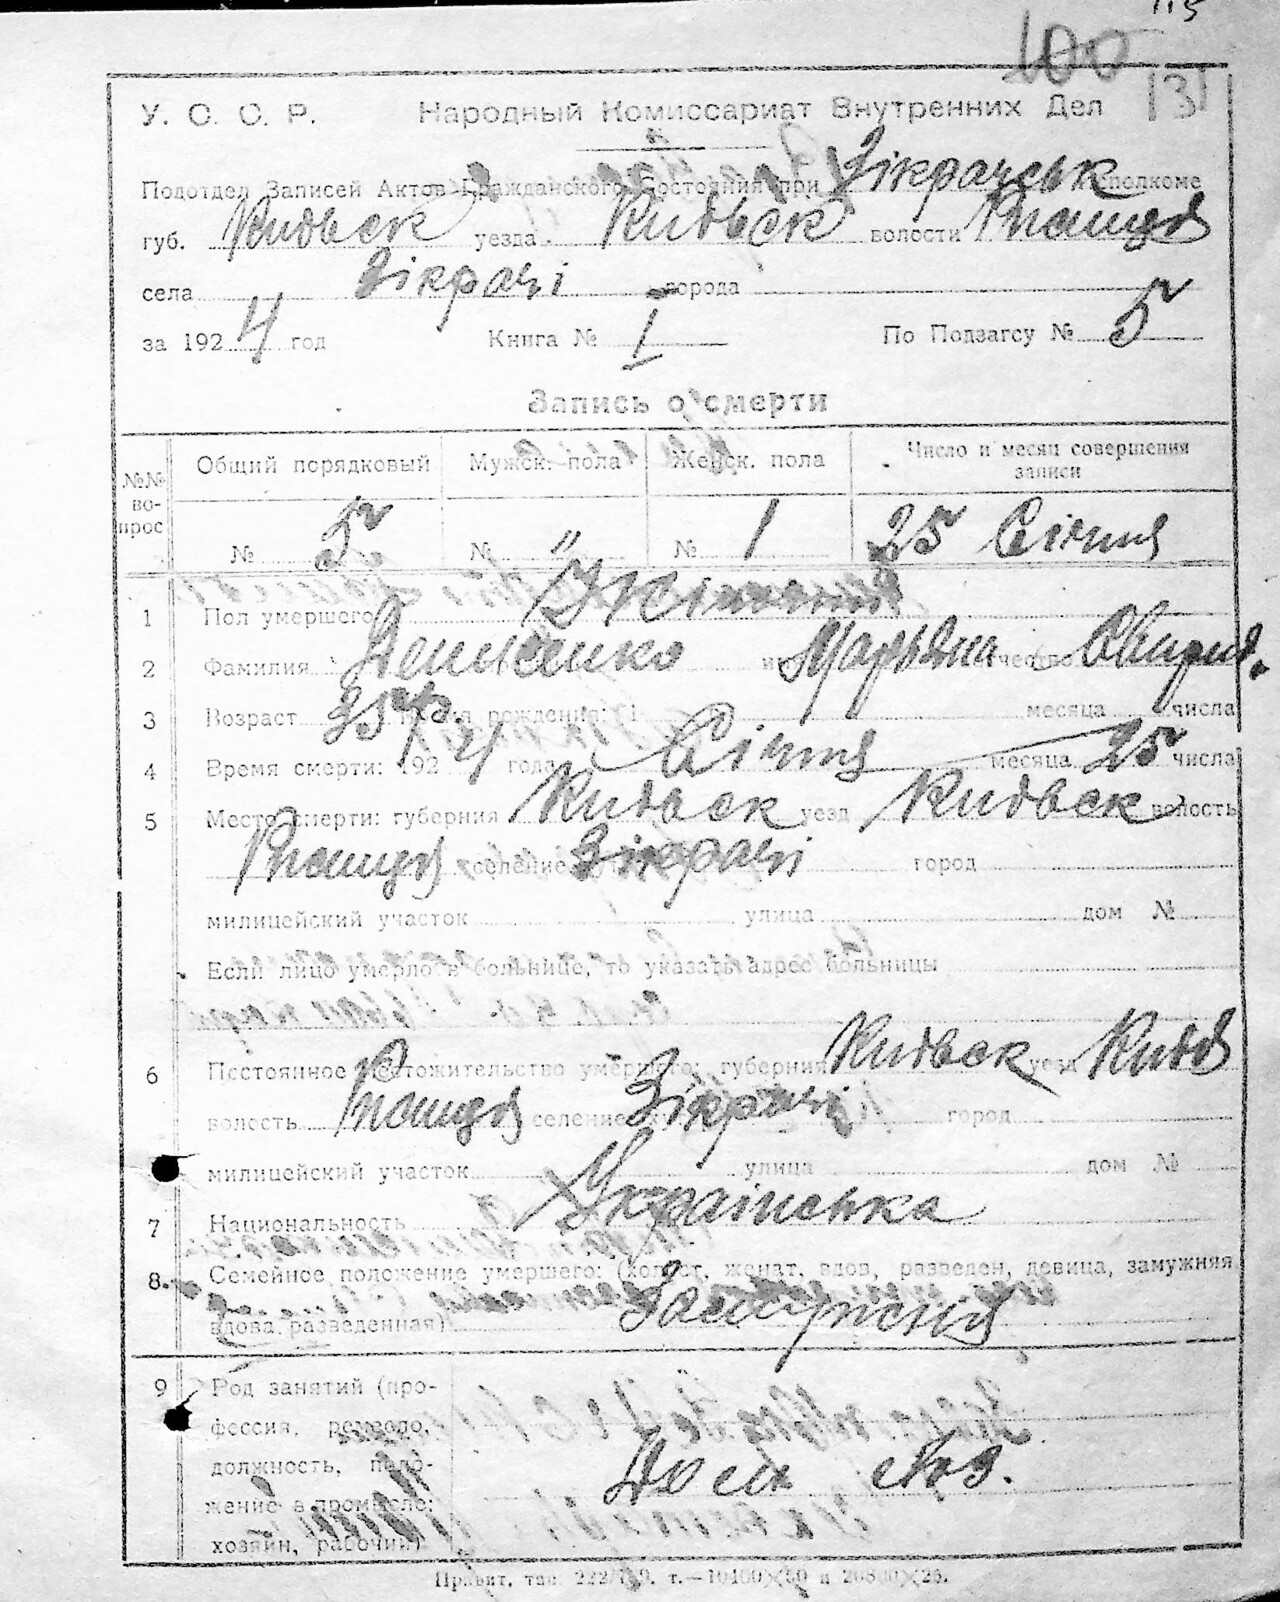 115
100
131
У. С. С. Р. Народный Комиссариат Внутренних Дел
Подотдел Записей Актов Гражданского Состояния при Зікрачськ исполкоме
губ. Київськ уезда Київськ волости Ржищев
села Зікрачі города
за 1924 год Книга № I По Подзагсу № 5
Запись о смерти
№№ вопрос Общий порядковый Мужск. пола Женск. пола Число и месяц совершения записи
№ 5 № " № 1 25 Січня
1 Пол умершего
2 Фамилия имя Марьяна отчество Свирид.
3 Возраст 35 Время рождения: месяца числа
4 Время смерти: 1924 года Січня месяца 25 числа
5 Место смерти: губерния Київськ уезд Київськ волость
Ржищев селение Зікрачі город
милицейский участок улица дом №
Если лицо умерло в больнице, то указать адрес больницы
6 Постоянное местожительство умершего: губерния Київськ уезд Київ
волость Ржищев селение Зікрачі город
милицейский участок улица дом №
7 Национальность Українська
8. Семейное положение умершего: (холост, женат, вдов, разведен, девица, замужняя
вдова, разведенная) Замужня
9 Род занятий (про-
фессия, ремесло,
должность, поло-
жение в промысле: Дом. хоз.
хозяин, рабочий)